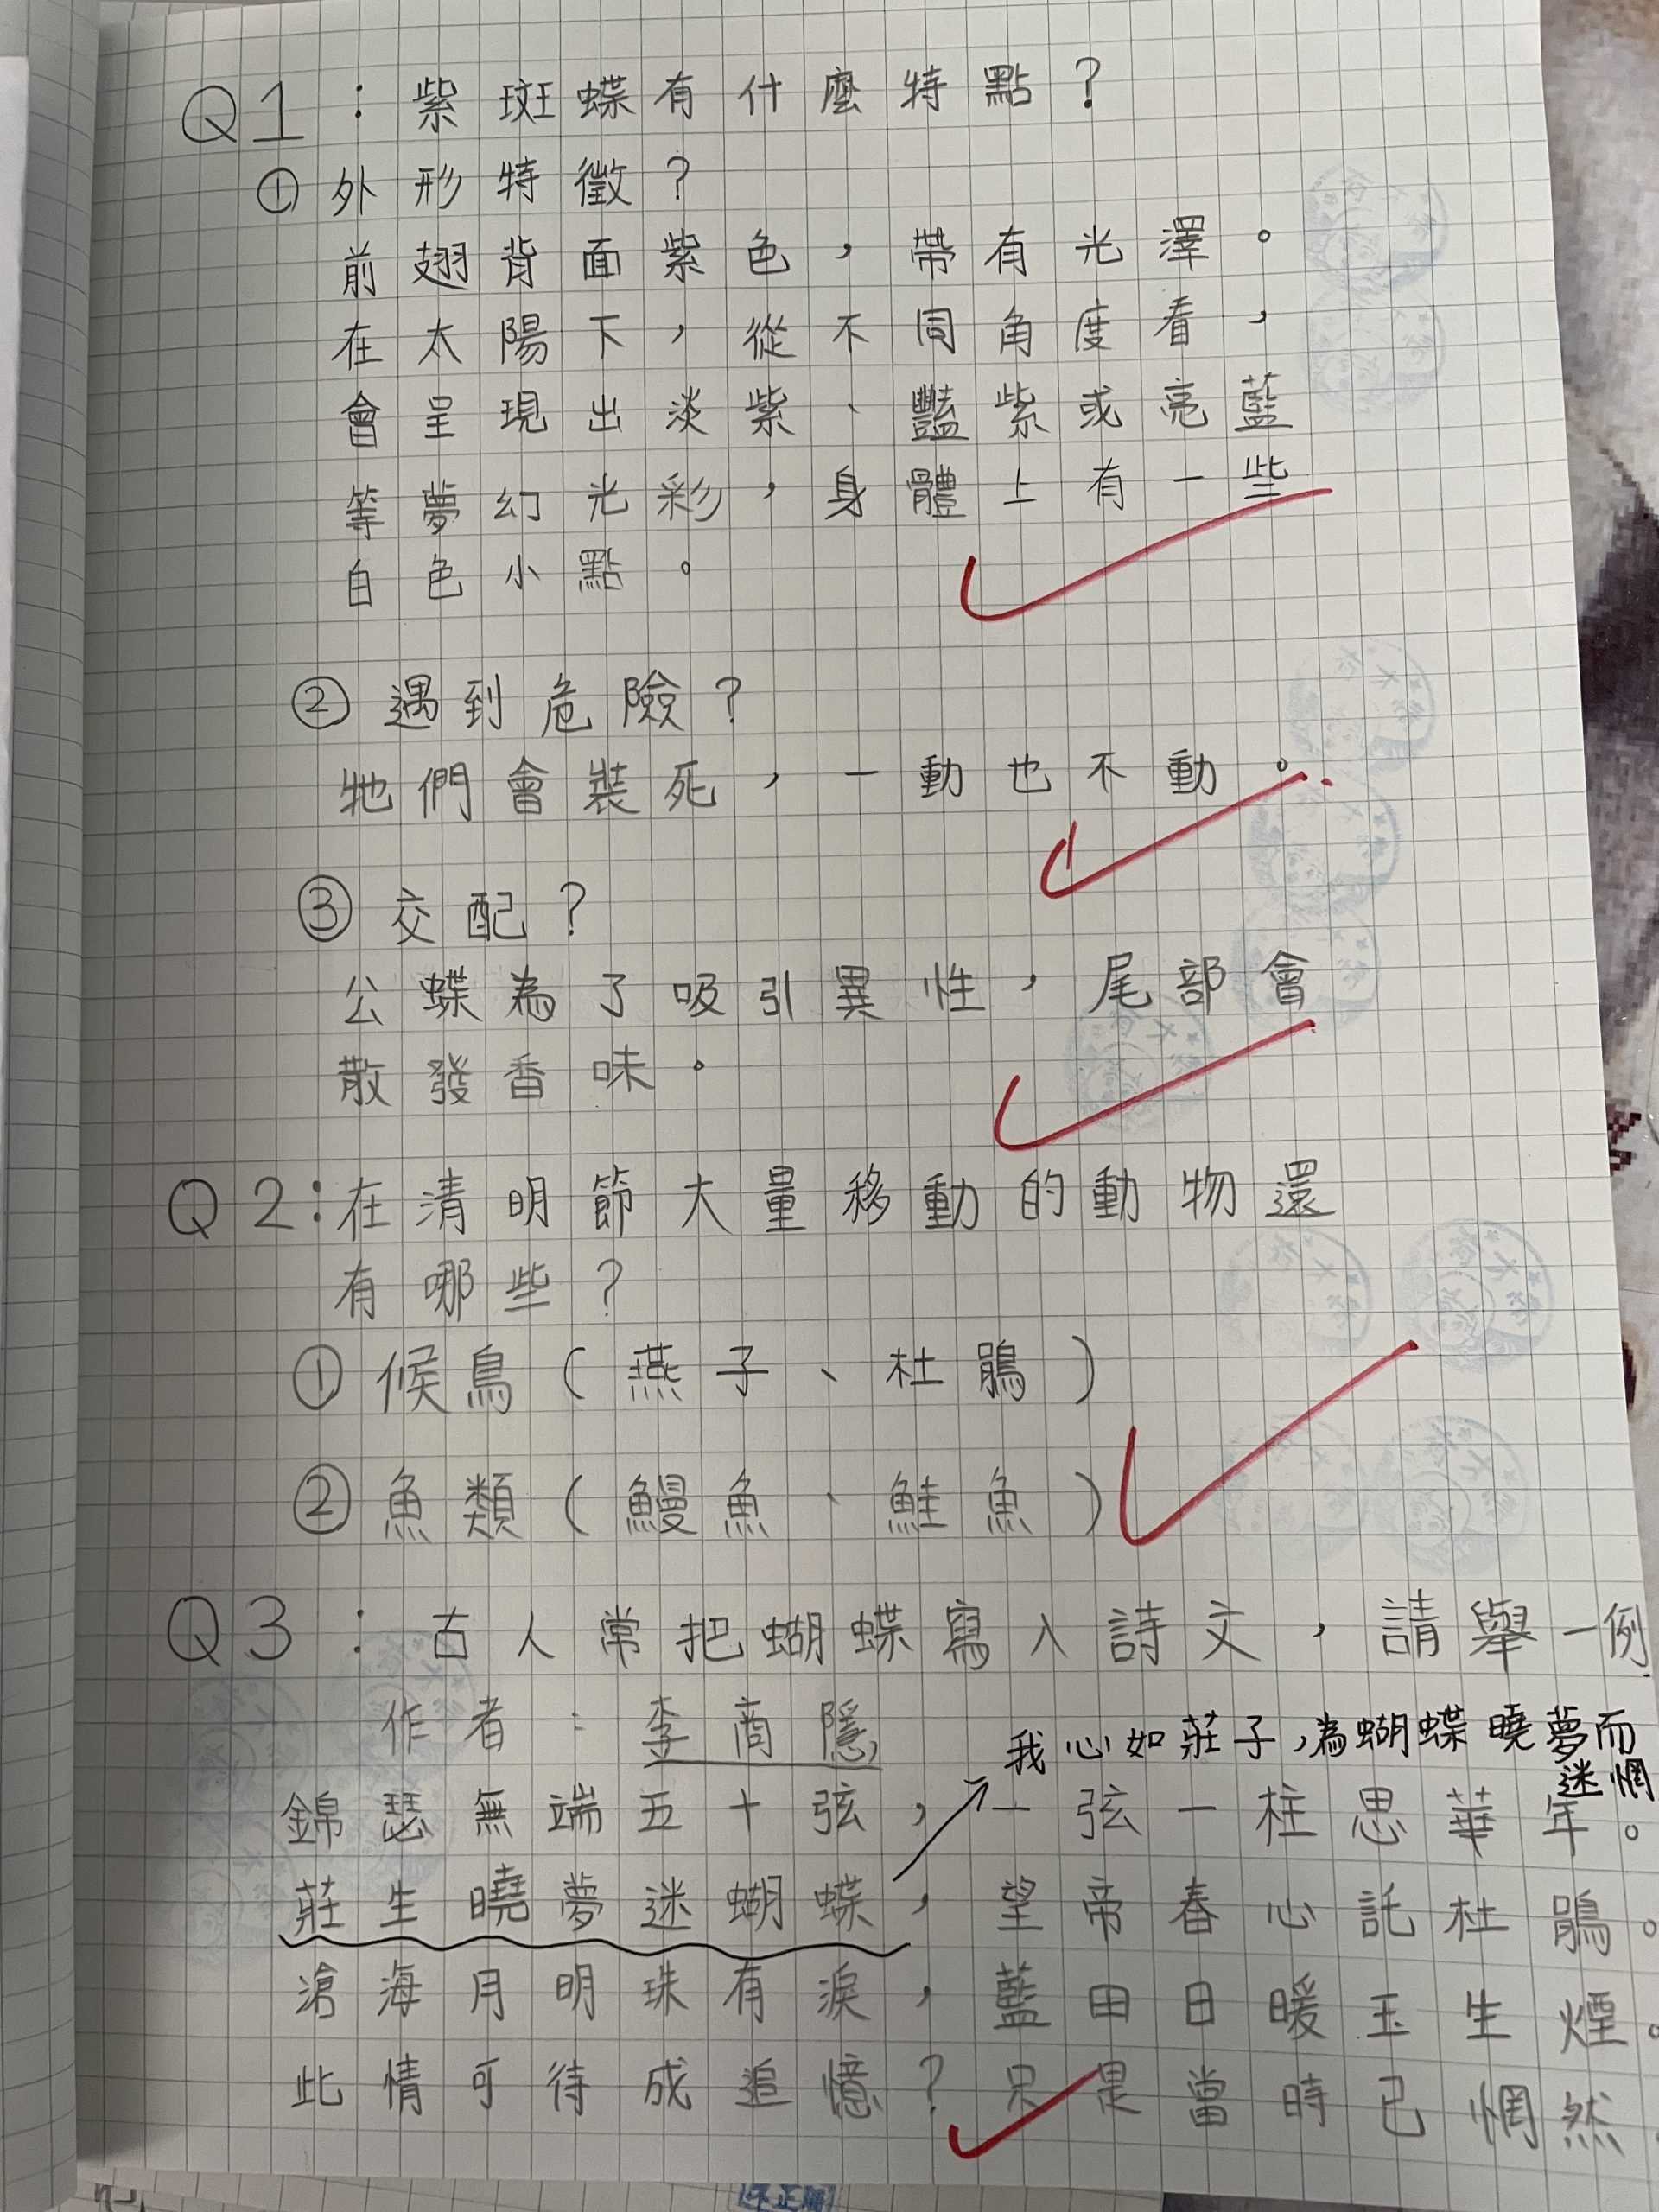 Q1：紫斑蝶有什麼特點？
①外形特徵？
前翅背面紫色，帶有光澤。
在太陽下，從不同角度看，
會呈現出淡紫、豔紫或亮藍
等夢幻光彩，身體上有一些
白色小點。
②遇到危險？
牠們會裝死，一動也不動。
③交配？
公蝶為了吸引異性，尾部會
散發香味。
Q2：在清明節大量移動的動物還
有哪些？
①候鳥(燕子、杜鵑)
②魚類(鰻魚、鮭魚)
Q3：古人常把蝴蝶寫入詩文，請舉一例
作者：李商隱
我心如莊子，為蝴蝶曉夢而
迷惘
錦瑟無端五十弦，一弦一柱思華年。
莊生曉夢迷蝴蝶，望帝春心託杜鵑。
滄海月明珠有淚，藍田日暖玉生煙。
此情可待成追憶？只是當時已惘然